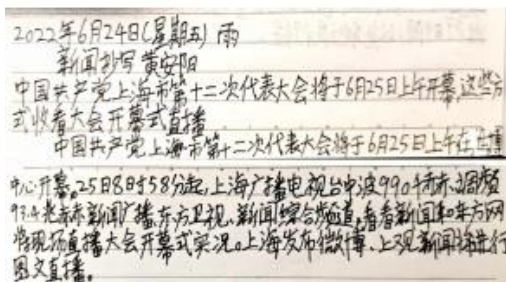 2022年6月24日(星期五) 雨
新闻抄写 黄安阳
中国共产党上海市第十二次代表大会将于6月25日上午开幕,这些方
式收看大会开幕式直播
中国共产党上海市第十二次代表大会将于6月25日上午在世博
中心开幕,25日8时58分起,上海广播电视台中波990千赫、调频
93.4兆赫新闻广播、东方卫视、新闻综合频道,看看新闻和东方网
将现场直播大会开幕式实况。上海发布微博、上观新闻将进行
图文直播。